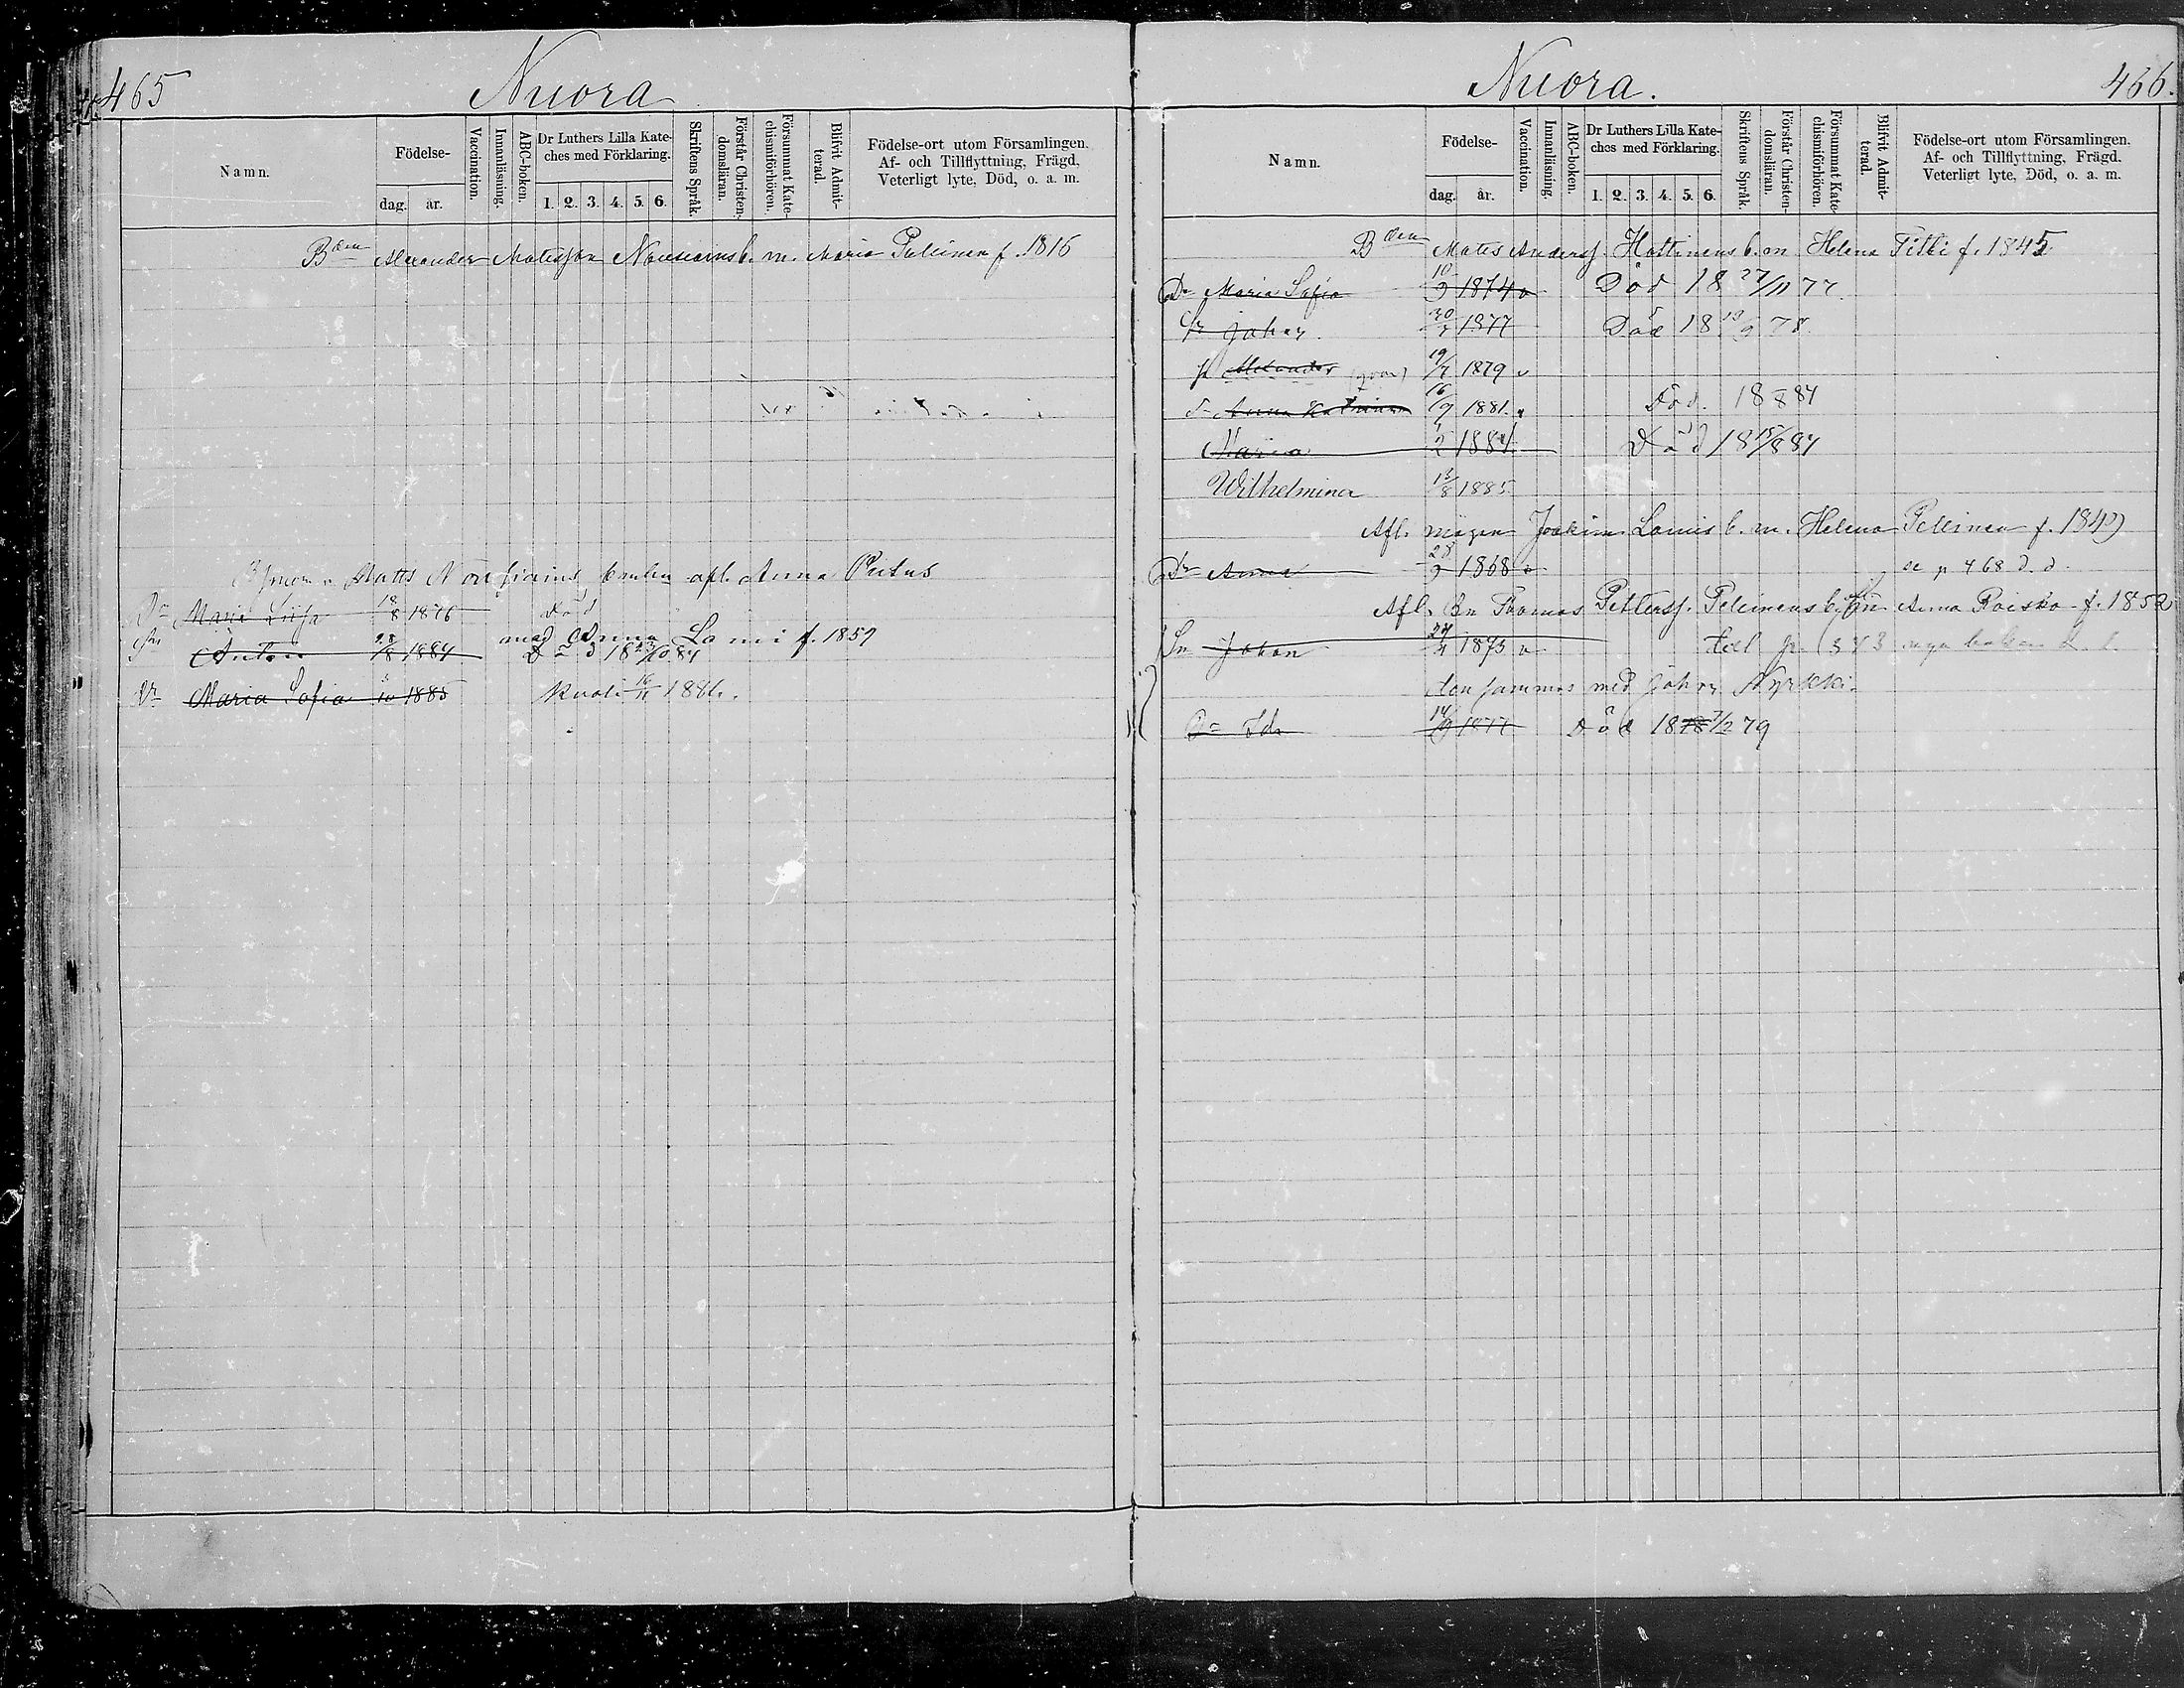 465
Nuora
Namn.
Födelse-
dag.
år.
Vaccination.
Innanläsning.
ABC-boken.
Dr Luthers Lilla Kate-
ches med Förklaring.
1. 2. 3. 4. 5. 6.
Skriftens Språk.
Förstår Christen-
domsläran.
Försummat Kate-
chismiförhören.
Blifvit Admit-
terad.
Födelse-ort utom Församlingen.
Af- och Tillflyttning, Frägd,
Veterligt lyte, Död, o. a. m.
Bden Alexander Matsson Nousiains b. m. Maria Pellinen f. 1816
Matts Nousiains enka afl. Anna Putus
Dr Maria Liisa 18/8 1876 Död
med Anna Lomi f. 1859
Sn Anton 28/8 1884 Död 18 /10 84
Dr Maria Sofia 1885 kuoli 16/11 1886.
Nuora.
466.
Namn.
Födelse-
dag.
år.
Vaccination.
Innanläsning.
ABC-boken.
Dr Luthers Lilla Kate-
ches med Förklaring.
1. 2. 3. 4. 5. 6.
Skriftens Språk.
Förstår Christen-
domsläran.
Försummat Kate-
chismiförhören.
Blifvit Admit-
terad.
Födelse-ort utom Församlingen.
Af- och Tillflyttning, Frägd.
Veterligt lyte, Död, o. a. m.
Bden Mats Anderss. Hottinens b. m. Helena Titti f. 1845
Dr Maria Sofia 10/9 1874 v Död 18 27/11 77.
Sn Johan 30/7 1877 Död 18 19/9 78.
Sn Alexander 19/7 1879 v
Dr Anna Katrina 16/9 1881. v Död. 18 8 84
Maria /2 1884 Död 18 15/8 84
Wilhelmina 13/8 1885
Afl. mågen Joakim Lomis b. m. Helena Pellinen f. 1849
Dr Anna 28/9 1868 v se p 468 d. d.
Afl. Bn Thomas Petterss. Pelinens b. Anna Paisko f. 1852
Sn Johan 27/4 1873 v p. 343 nya boken
den sammas med Johan Nyrkki.
Dr Ida 14/9 1877 Död 1878 7/2 79